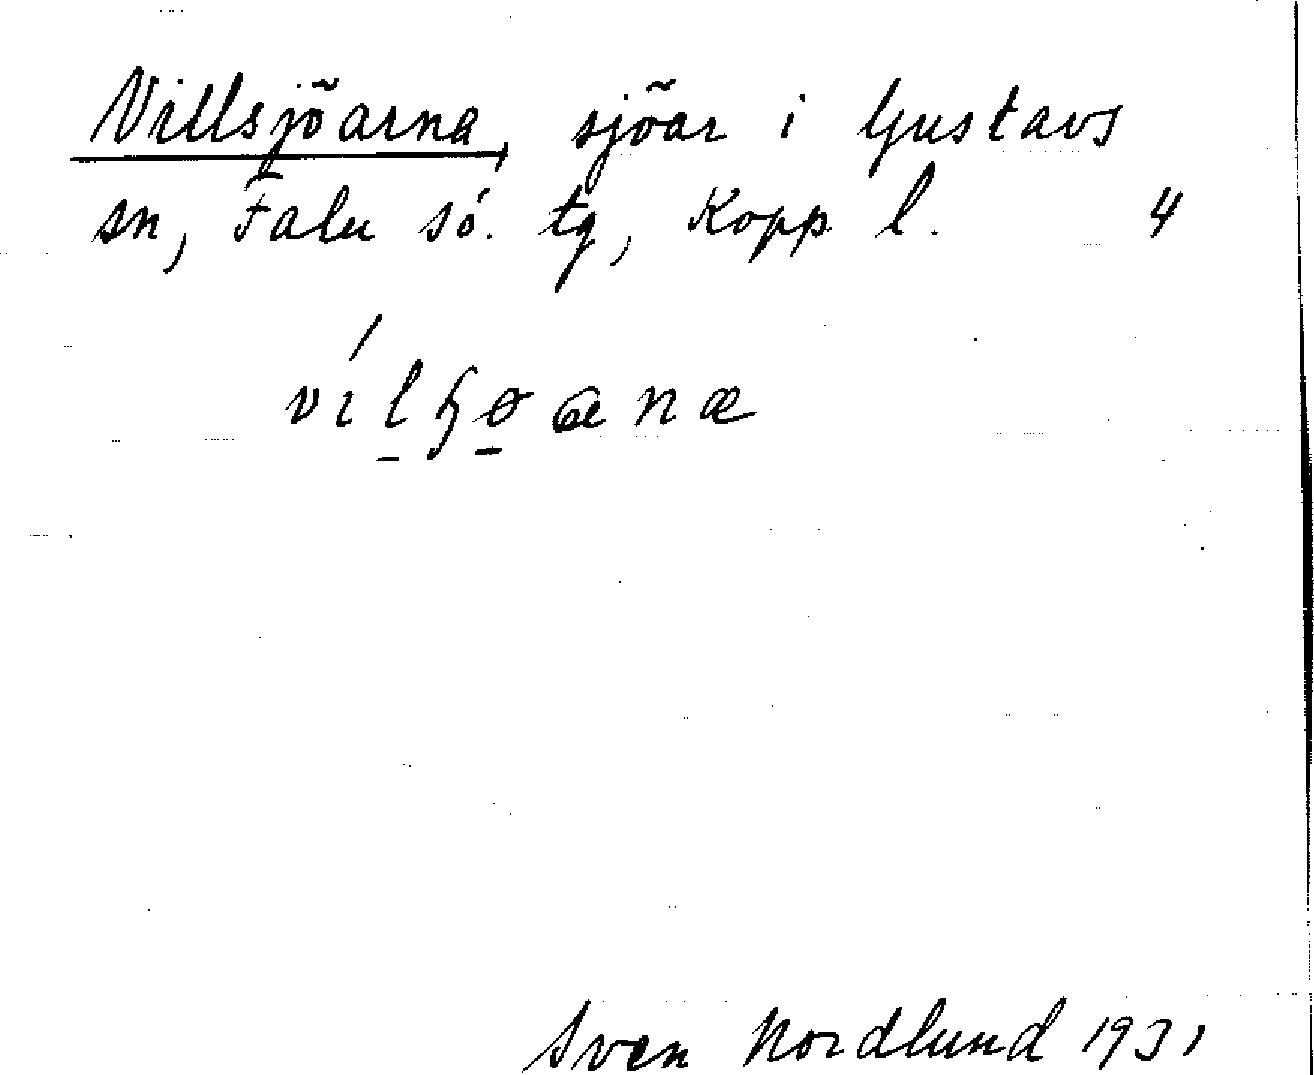 Villsjöarna, sjöar i Gustavs
sn, Falu sö. tg, Kopp l. 4
Sven Nordlund 1931